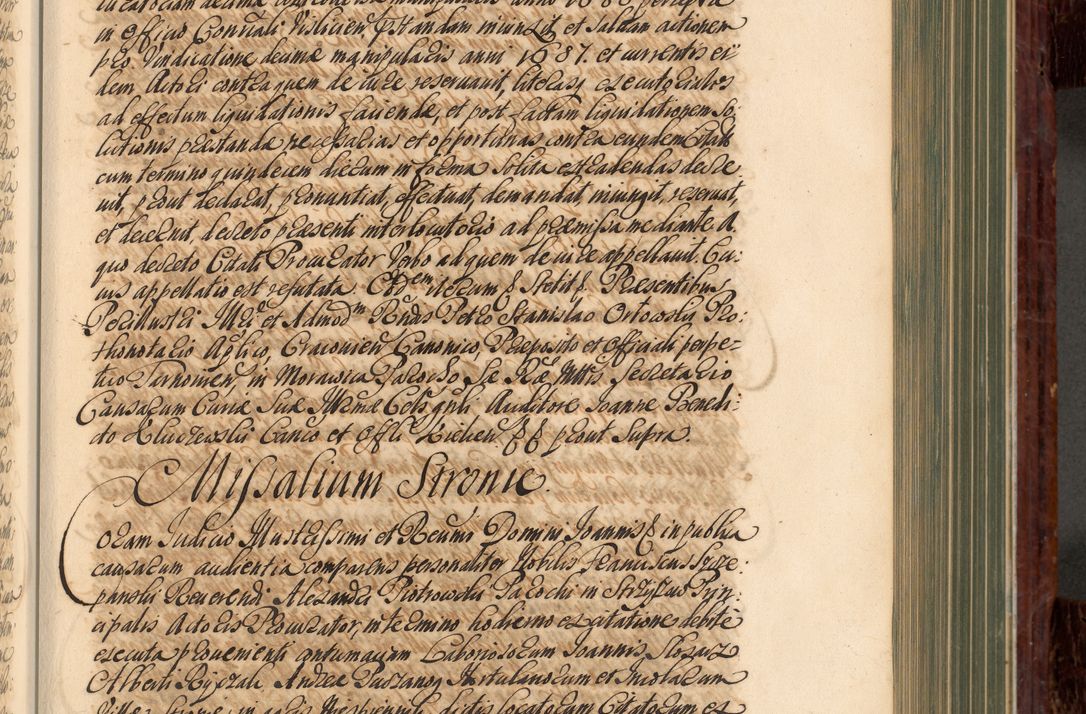 in officio Consuali Visliciensi praestandam iniunxit et saluam actionem
pro Vindicatione decimae manipularis anni 1687. et currentis ei
dem Actori contra quem de iure reseruauit, literasq executoriales
ad effectum liquidationis faciendae, et post factam liquidationem so
lutionis praestandae necessarias et opportunas contra eundem Citatum
cum termino quindecim dierum in forma solita extradendas decre
uit, prout declarat, pronuntiat, effectuat, demandat, iniungit, reseruat,
et decernit, decreto praesenti interlocutorio ad praemissa mediante A
quo decreto Citati Procurator Verbo ad quem de iure appellauit. Cu
ius appellatio est refutata. iterum & stetit &. Praesentibus
Perillustri Mri et Admodm Rndis Petro Stanislao Orlowski Pro:
thonotario Aplico, Cracouien Canonico, Praeposito et officiali perpe-
tuo Tarnouien, in Morawica Parocho, Sae Rae Mttis Secretario
Causarum Curiae Suae Illmae Celsqnis Auditore, Joanne Benedi:
cto Kluczewski Canco et Offli Kielcen && prout supra.
Missalium Stronie.
Coram Iudicio Illustrissimi et Reuerendissimi Domini Joannis & in publica
causarum audientia comparens personaliter Nobilis Franciscus Szcze:
panski Reuerendi Alexandri Piotrowski Parochi in Strzyzuo Prin
cipalis Actoris Procurator, in termino hodierno ex citatione debite
executa proueniente contumaciam Laboriosorum Joannis Slosarz
Alberti Ryszali, Andreae Hortulanorum et Incolarum
Villae Stronie in actis dictis locatorum Citatorum ex